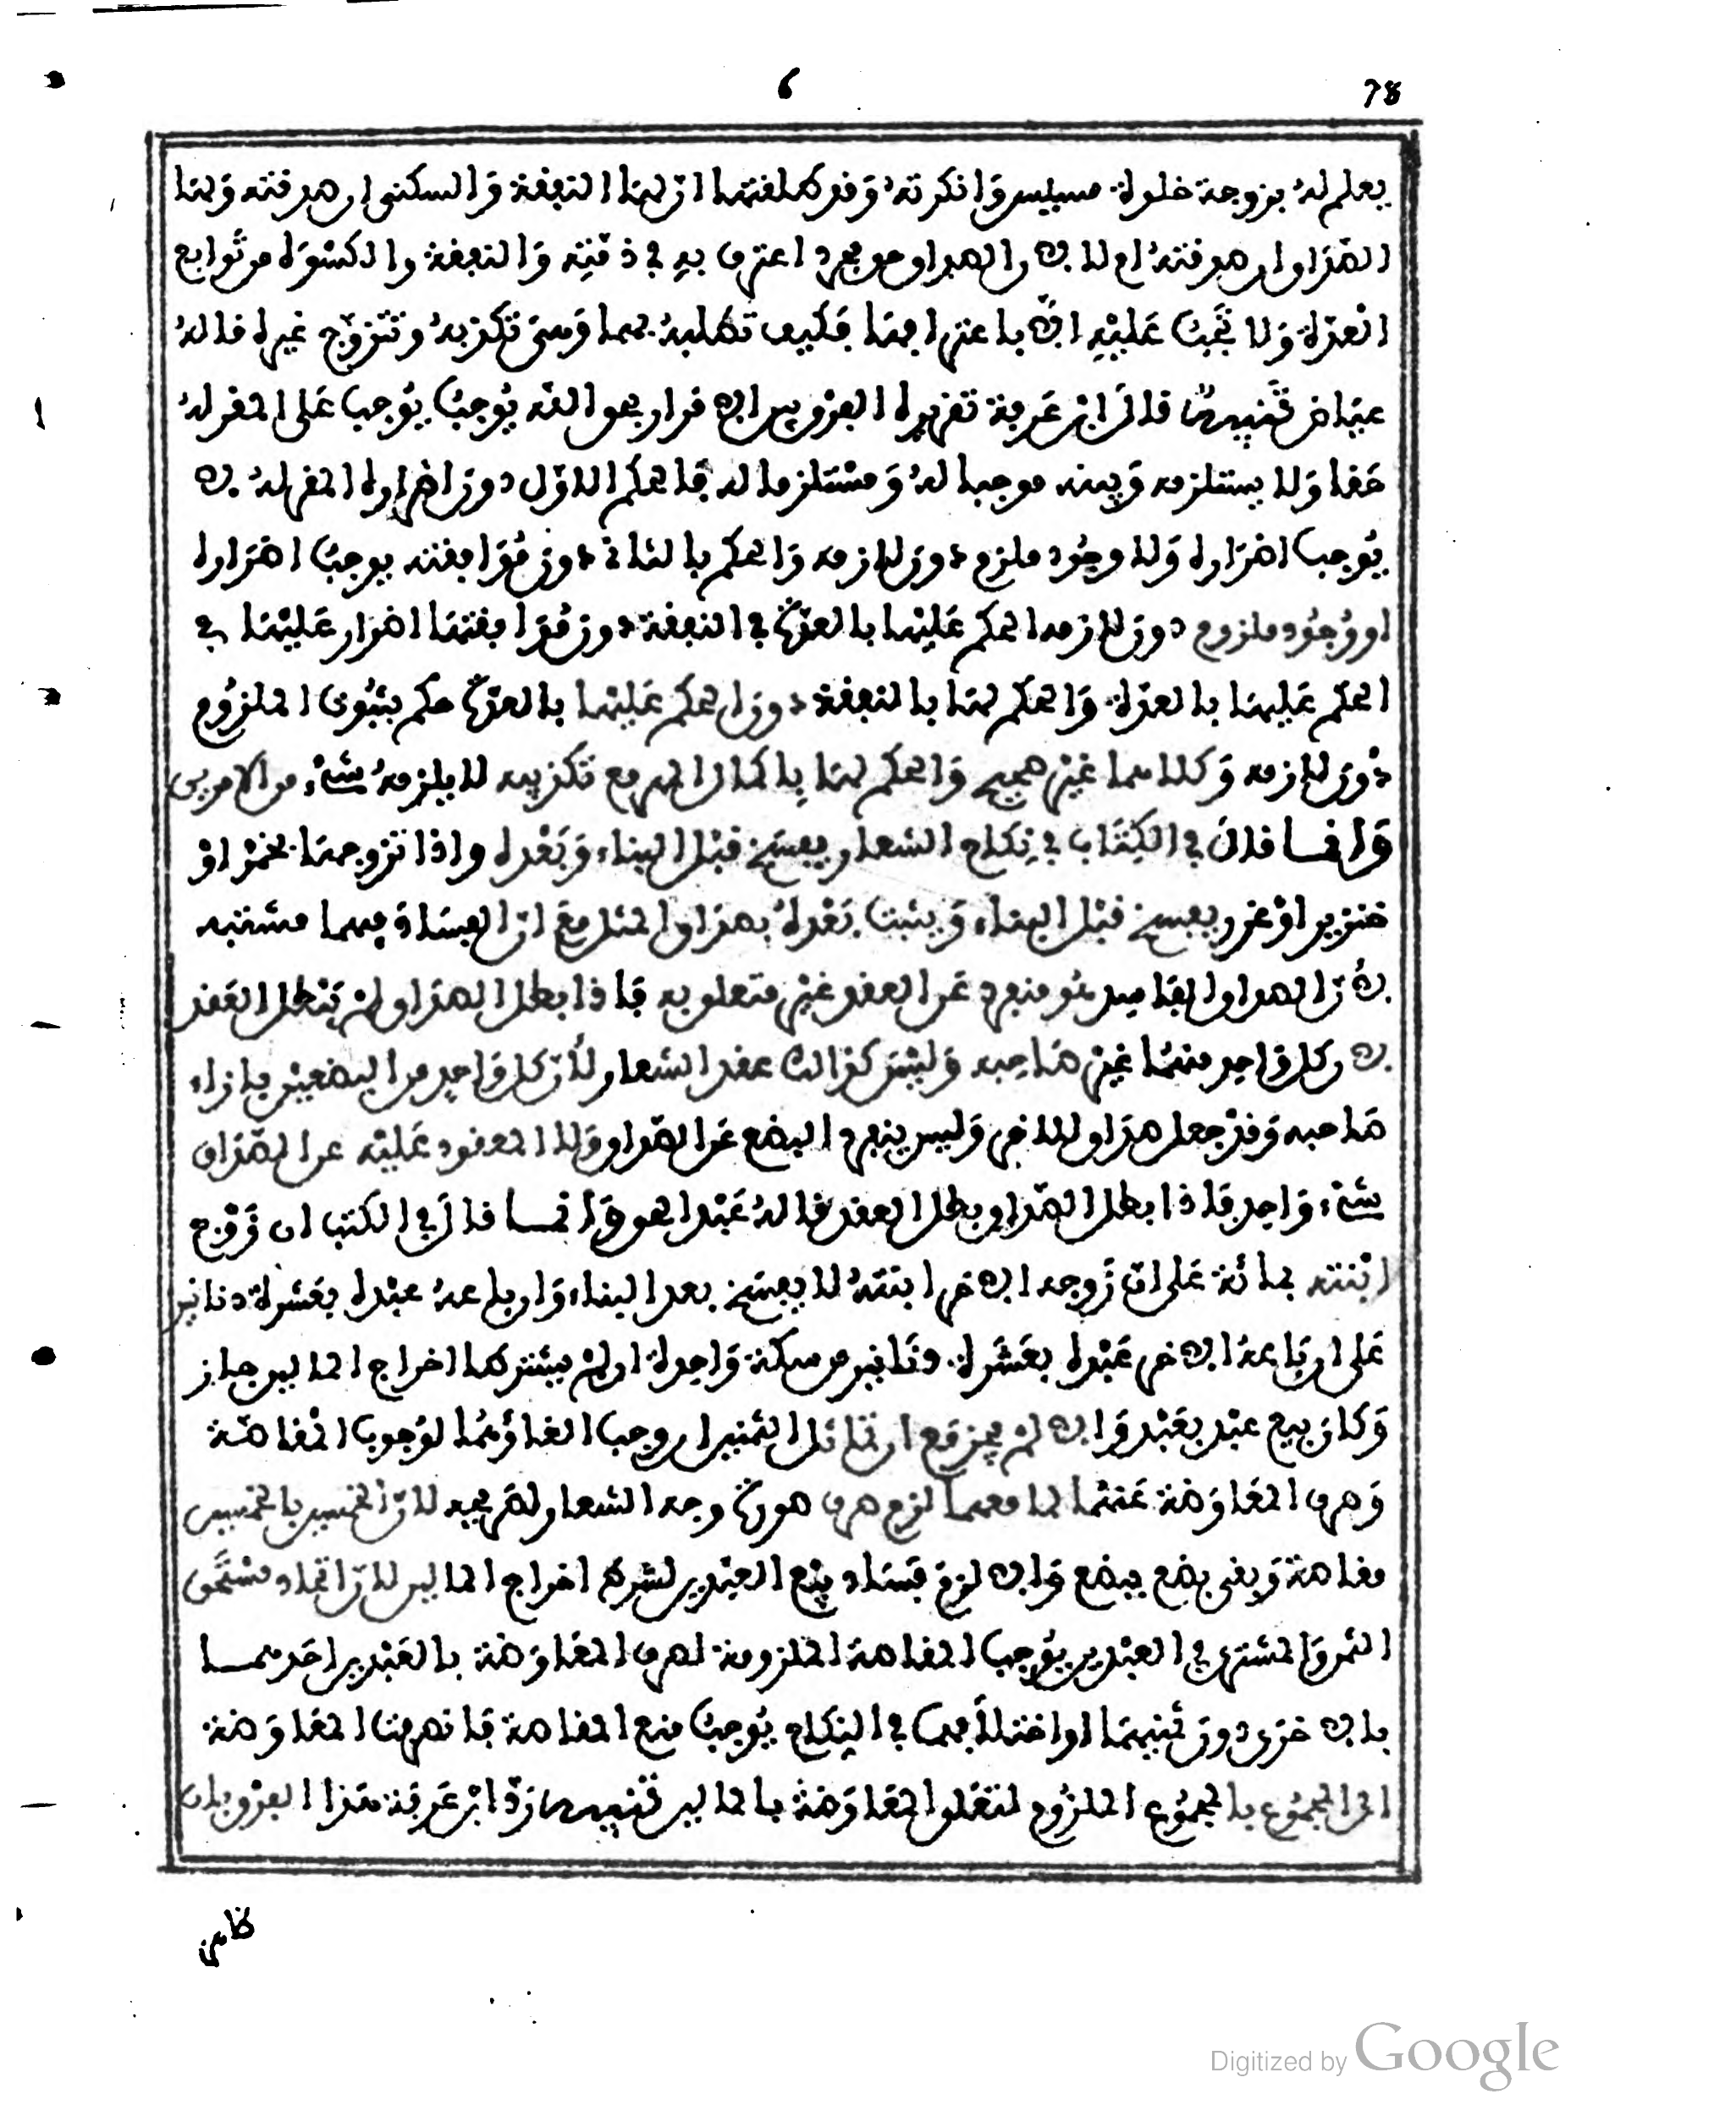 6 78
يعلم له بزوجة خلوة مسيس وانكرته وقد طلقتها ان لها النفقة والسكنى ان صدقته ولها
الصداق ان صدقته ام لا لان الصداق هو مجرد اعترف به في ذمته والنفقة والكسوة من توابع
العدة ولا تجب عليه الا باعترافها فكيف تطلبه بهما وهي تكذبه وتتزوج غيره قاله
عياض تنبيه قال ابن عرفة تقرير الفرق بين الاقرار بحق الله يوجب على المقر له
حقا ولا يستلزمه وبينه موجبا له ومستلزما له فالحكم الاول دون اضرار المقر له لا
يوجب اضراره ولا وجود ملزوم دون لازمه والحكم بالثاني دون موافقته يوجب اضراره
او وجود ملزوم دون لازمه الحكم عليها بالعدة في النفقة دون موافقتها اضرار عليها في
الحكم عليها بالعدة والحكم لها بالنفقة دون الحكم عليها بالعدة حكم بثبوت الملزوم
دون لازمه وكلاهما غير صحيح والحكم لها باكمال المهر مع تكذيبه لا يلزمه شيء من الامرين
وانما قال في الكتاب في نكاح الشغار يفسخ قبل البناء وبعده واذا تزوجها بخمر او
خنزير او غرر يفسخ قبل البناء ويثبت بعده بصداق المثل مع ان الفساد فيهما مشتبه
لان الصداق الفاسد منفرد عن العقد غير متعلق به فاذا بطل الصداق لم يبطل العقد
لان كل واحد منهما غير صاحبه وليس كذالك عقد الشغار لان كل واحد من البضعين بازاء
صاحبه وقد جعل صداق للاخر وليس ينفرد البضع عن الصداق ولا المعقود عليه عن الصداق
شيء واحد فاذا بطل الصداق بطل العقد قاله عبد الحق وانما قال في الكتب ان زوج
ابنته بمائة على ان زوجه الاخر ابنته لا يفسخ بعد البناء وان باعه عبده بعشرة دنانير
على ان باعه الاخر عبده بعشرة دنانير من سكة واحدة ان لم يشترطا اخراج المالين جاز
وكان بيع عبد بعبد والا لم يجز مع ان تماثل الثمنين ان وجب الغاؤهما لوجوب المقاصة
وصرف المعاوضة عنهما لما معهما لزم صرف صورة وجه الشغار لصريحه لان الخمسين بالخمسين
مقاصة وبقي بضع ببضع والا لزم فساد بيع العبدين لشرط اخراج المالين لان اتحاد مستحق
الثمن والمشترى في العبدين يوجب المقاصة الملزومة لصرف المعاوضة بالعبدين احدهما
بالاخرى دون ثمنيهما واختلافهما في النكاح يوجب منع المقاصة فانصرفت المعاوضة
الى المجموع بالمجموع الملزوم لتعلق المعاوضة بالمالين تنبيه رد ابن عرفة هذا الفرق بان
ظاهر
Digitized by Google